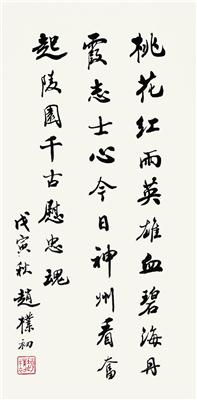 桃花红雨英雄血碧海丹
霞志士心今日神州看奮
起陵園千古慰忠魂
戊寅秋趙樸初